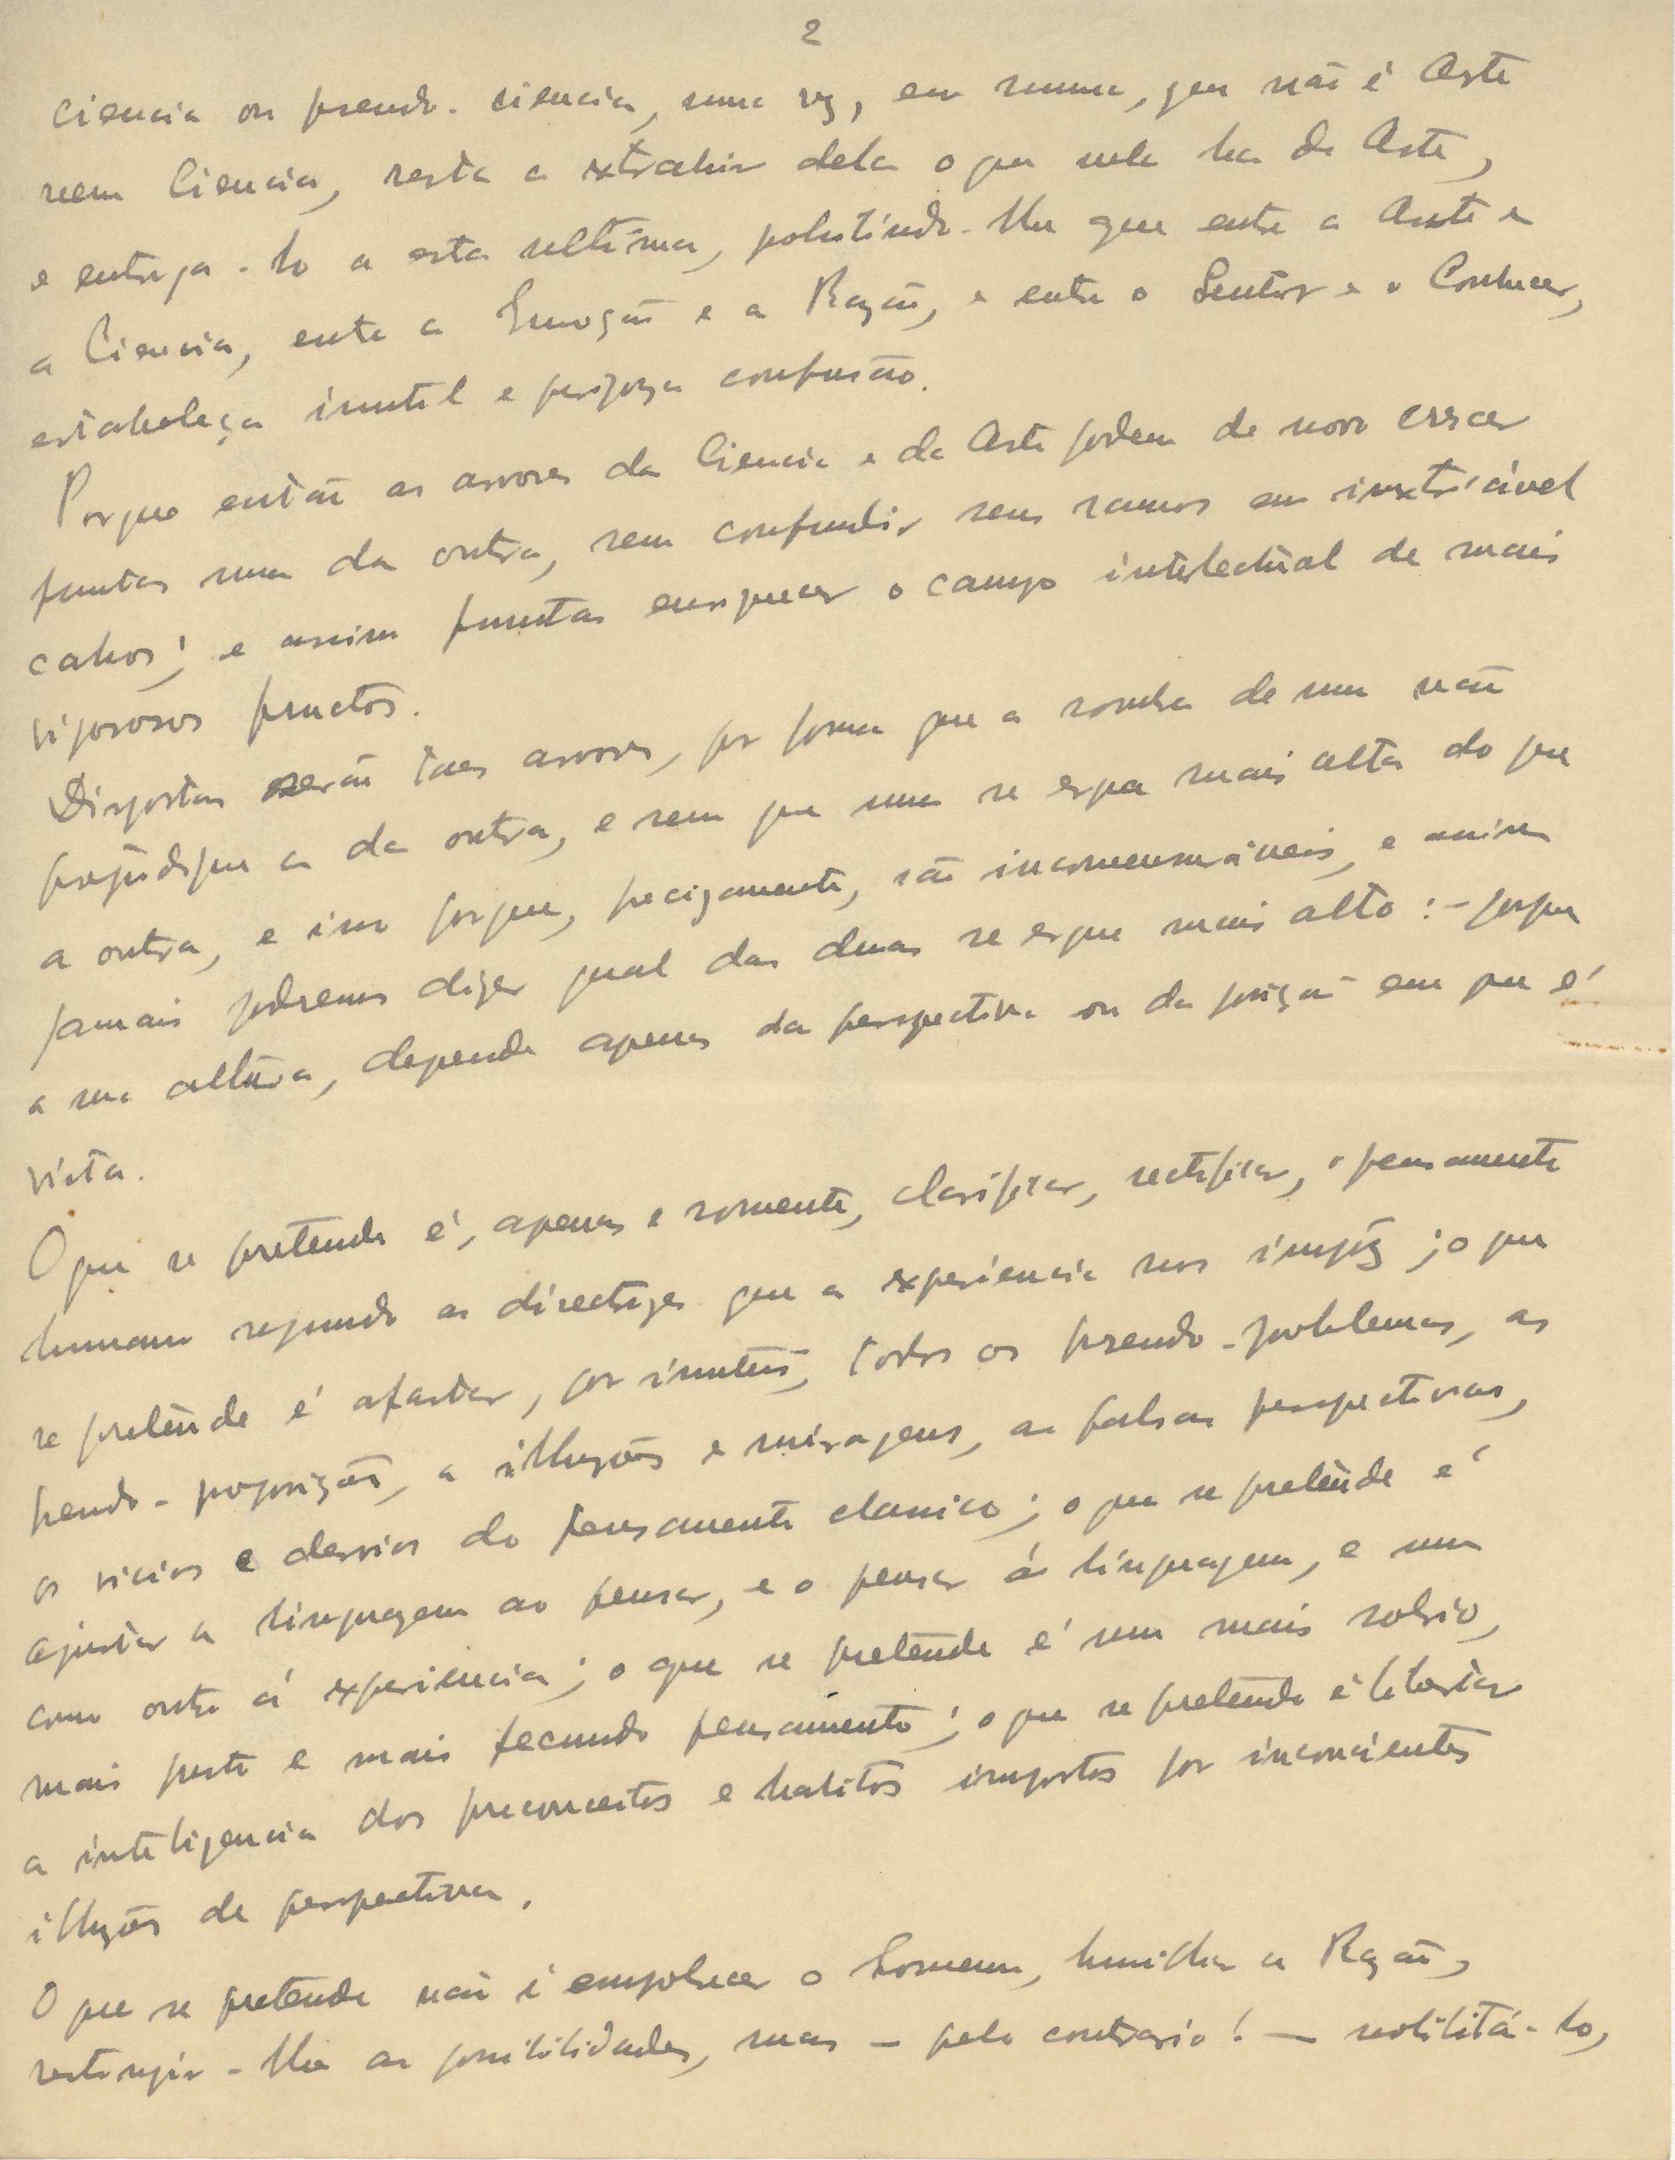 2
ciencia ou pseudo-ciencia, uma vez, em summa, que não é Arte
nem Ciencia, resta a extrahir dela o que nela ha de Arte,
e entrega-lo a esta ultima, que entre a Arte e
a Ciencia, entre a Emoção e a Razão, e entre o Sentir e o Conhecer,
estabeleça inutil e perigoza confusão.
Porque então as arvores da Ciencia e da Arte podem de novo crescer
juntas uma da outra, sem confundir seus ramos em inextricável
cahos; e assim juntas enriquecer o campo intelectual de mais
vigorosos fructos.
Dispostas serão taes arvores, por forma que a sombra de uma não
prejudique a da outra, e sem que uma se erga mais alta do que
a outra, e isso porque, precizamente, são incomensuráveis, e assim
jamais poderemos dizer qual das duas se ergue mais alto: - porque
a sua altura, depende apenas da perspectiva ou da posição em que é
vista.
O que se pretende é, apenas e somente, clarificar, rectificar, o pensamento
humano segundo as directrizes que a experiencia nos impõz; o que
se pretende é afastar, por inuteis, todos os pseudo-problemas, as
pseudo-proposições, as illuzões e miragens, as falsas perspectivas,
os vicios e desvios do pensamento classico; o que se pretende é
ajustar a linguagem ao pensar, e o pensar á linguagem, e um
como outro á experiencia; o que se pretende é um mais sobrio,
mais forte e mais fecundo pensamento; o que se pretende é libertar
a inteligencia dos preconceitos e habitos impostos por inconcientes
illuzões de perspectiva.
O que se pretende não é empobrecer o homem, humilhar a Razão,
restringir-lhe as possibilidades, mas - pelo contrario! - nobilitá-lo,